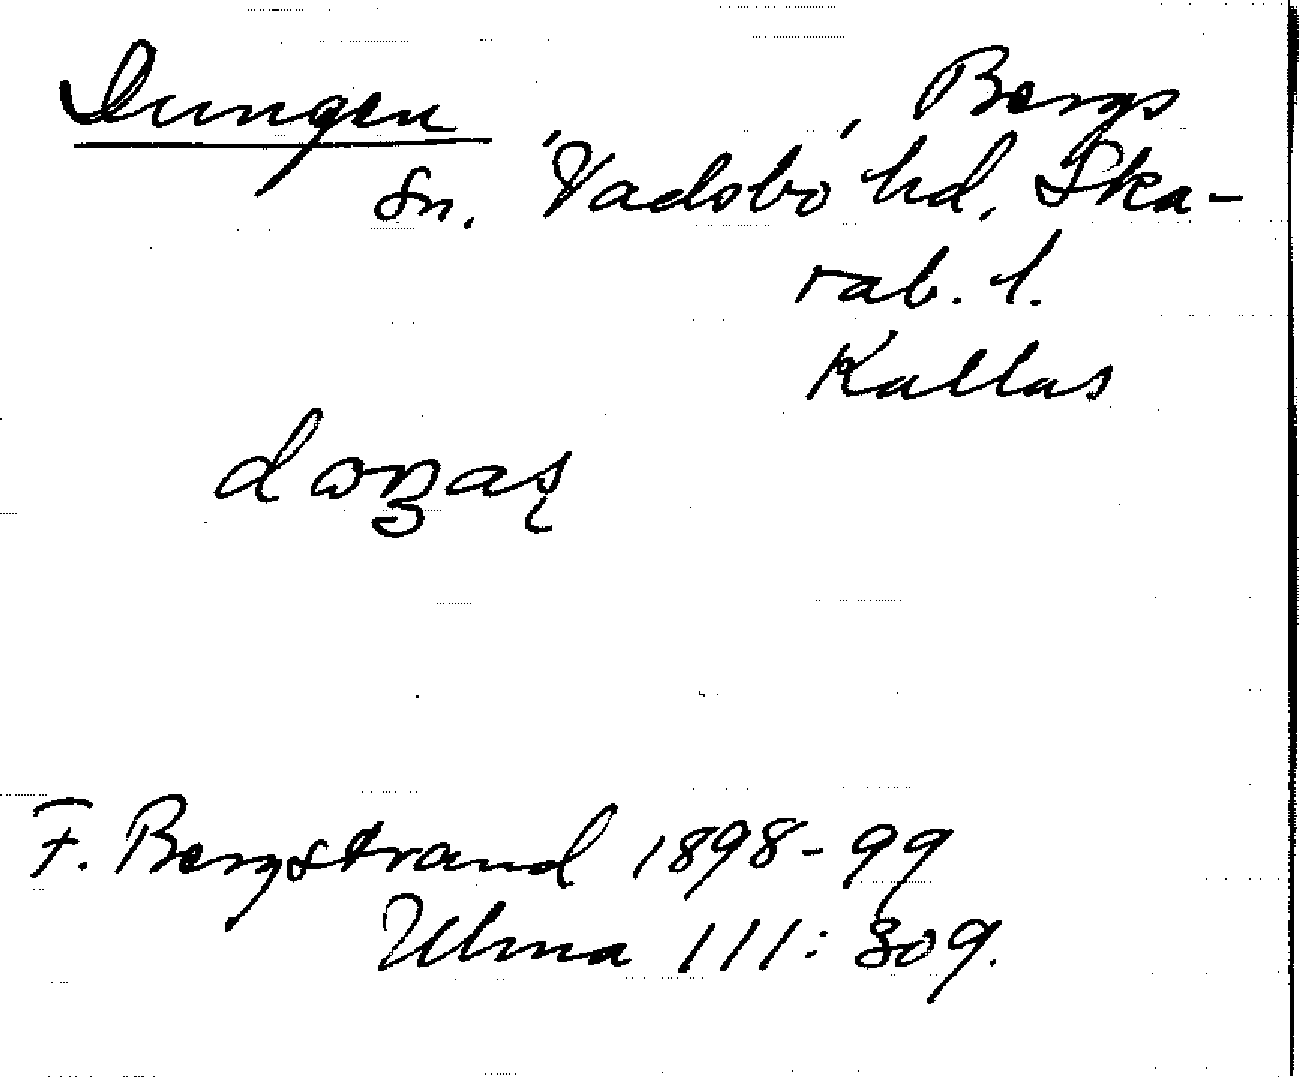 Dungen , Bergs
sn. Vadsbo hd, Ska-
rab. l.
Kallas
F. Bergstrand 1898-99
Ulma 111: 309.